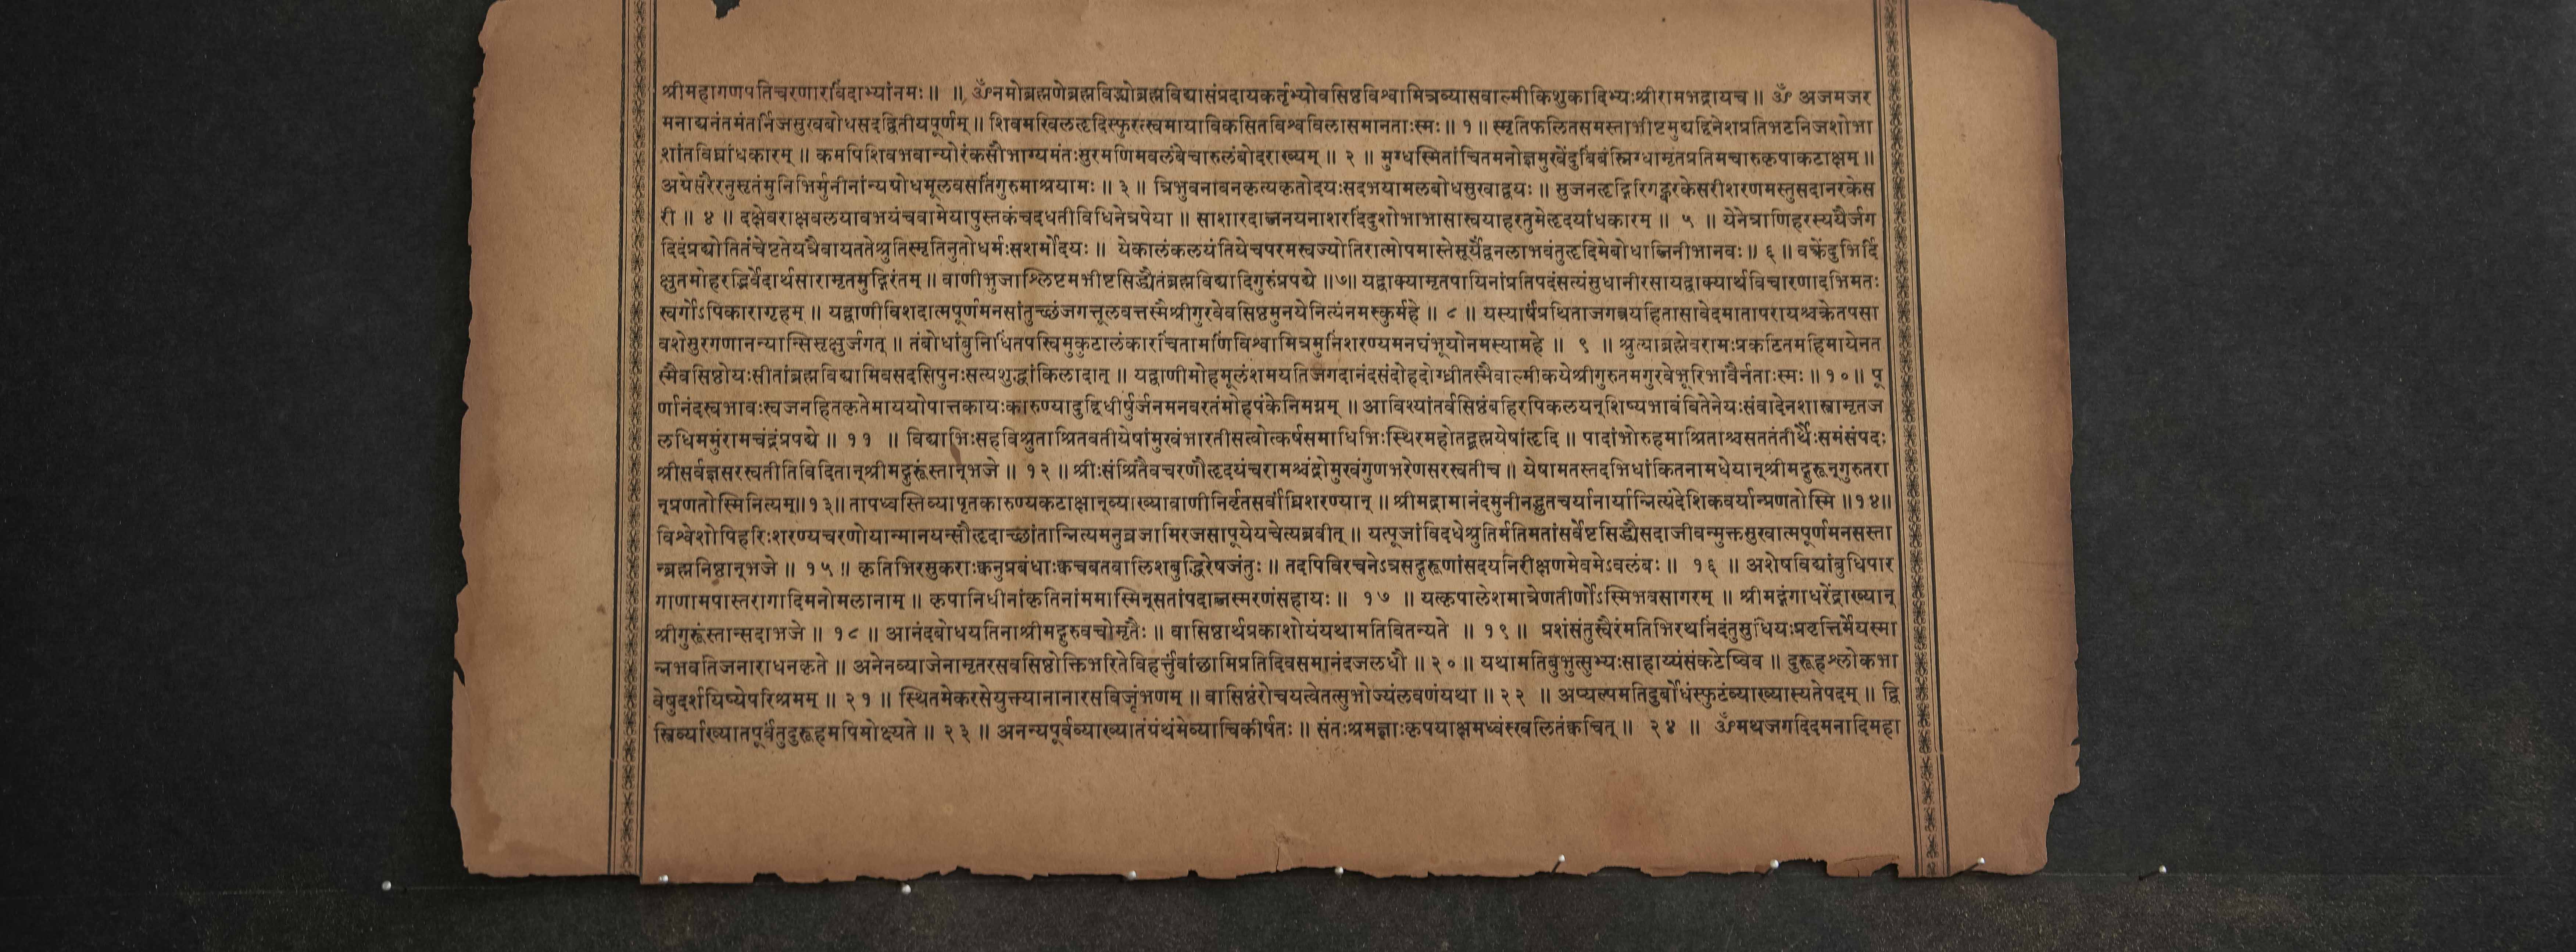 श्रीमहागणपतिचरणारविंदाभ्यांनमः ॥ ॥ ॐनमोब्रह्मणेब्रह्मविद्भ्योब्रह्मविद्यासंप्रदायकर्तृभ्योवसिष्ठविश्वामित्रव्यासवाल्मीकिशुकादिभ्यःश्रीरामभद्रायच ॥ ॐ अजमजर
मनाद्यनंतमंतर्निजसुखबोधसदद्वितीयपूर्णम् ॥ शिवमखिलहृदिस्फुरत्स्वमायाविकसितविश्वविलासमानताःस्मः ॥ १ ॥ स्मृतिफलितसमस्ताभीष्टमुद्यद्दिनेशप्रतिभटनिजशोभा
शांतविघ्नांधकारम् ॥ कमपिशिवभवान्योरंकसौभाग्यमंतःसुरमणिमवलंबेचारुलंबोदराख्यम् ॥ २ ॥ मुग्धस्मितांचितमनोज्ञमुखेंदुबिंबंस्निग्धामृतप्रतिमचारुकृपाकटाक्षम् ॥
अग्रेसरैरनुसृतंमुनिभिर्मुनीनांन्यग्रोधमूलवसतिंगुरुमाश्रयामः ॥ ३ ॥ त्रिभुवनावनकृत्यकृतोदयःसदभयामलबोधसुखाद्वयः ॥ सुजनहृद्गिरिगह्वरकेसरीशरणमस्तुसदानरकेस
री ॥ ४ ॥ दक्षेवराक्षवलयावभयंचवामेयापुस्तकंचदधतीविधिनेत्रपेया ॥ साशारदाब्जनयनाशरदिंदुशोभाभासास्वयाहरतुमेहृदयांधकारम् ॥ ५ ॥ येनेत्राणिहरस्ययैर्जग
दिदंप्रद्योतितंचेष्टतेयत्रैवायततेश्रुतिस्मृतिनुतोधर्मःसशर्मोदयः ॥ येकालंकलयंतियेचपरमस्वज्योतिरात्मोपमास्तेसूर्येंद्वनलाभवंतुहृदिमेबोधाब्जिनीभानवः ॥ ६ ॥ वक्रेंदुभिर्दि
क्षुतमोहरद्भिर्वेदार्थसारामृतमुद्गिरंतम् ॥ वाणीभुजाश्लिष्टमभीष्टसिद्ध्यैतंब्रह्मविद्यादिगुरुंप्रपद्ये ॥७॥ यद्वाक्यामृतपायिनांप्रतिपदंसत्यंसुधानीरसायद्वाक्यार्थविचारणादभिमतः
स्वर्गोऽपिकारागृहम् ॥ यद्वाणीविशदात्मपूर्णमनसांतुच्छंजगत्तूलवत्तस्मैश्रीगुरवेवसिष्ठमुनयेनित्यंनमस्कुर्महे ॥ ८ ॥ यस्यार्षप्रथिताजगत्रयहितासावेदमातापरायश्चक्रेतपसा
वशेसुरगणानन्यान्सिसृक्षुर्जगत् ॥ तंबोधांबुनिधिंतपस्विमुकुटालंकारचिंतामणिंविश्वामित्रमुनिंशरण्यमनघंभूयोनमस्यामहे ॥ ९ ॥ श्रुत्याब्रह्मेवरामःप्रकटितमहिमायेनत
स्मैवसिष्ठोयःसीतांब्रह्मविद्यामिवसदसिपुनःसत्यशुद्धांकिलादात् ॥ यद्वाणीमोहमूलंशमयतिजगदानंदसंदोहदोग्ध्रीतस्मैवाल्मीकयेश्रीगुरुतमगुरवेभूरिभावैर्नताःस्मः ॥१०॥ पू
र्णानंदस्वभावःस्वजनहितकृतेमाययोपात्तकायःकारुण्यादुद्दिधीर्षुर्जनमनवरतंमोहपंकेनिमग्नम् ॥ आविश्यांतर्वसिष्ठंबहिरपिकलयन्शिष्यभावंवितेनेयःसंवादेनशास्त्रामृतज
लधिममुंरामचंद्रंप्रपद्ये ॥ ११ ॥ विद्याभिःसहविश्रुताश्रितवतीयेषांमुखंभारतीसत्वोत्कर्षसमाधिभिःस्थिरमहोतद्ब्रह्मयेषांहृदि ॥ पादांभोरुहमाश्रिताश्चसततंतीर्थैःसमंसंपदः
श्रीसर्वज्ञसरस्वतीतिविदितान्श्रीमद्गुरूंस्तान्भजे ॥ १२ ॥ श्रीःसंश्रितैवचरणौहृदयंचरामश्चंद्रोमुखंगुणभरेणसरस्वतीच ॥ येषामतस्तदभिधांकितनामधेयान्श्रीमद्गुरून्गुरुतरा
न्प्रणतोस्मिनित्यम्॥१३॥ तापध्वस्तिव्यापृतकारुण्यकटाक्षान्व्याख्यावाणीनिर्वृतसर्वांघ्रिशरण्यान् ॥ श्रीमद्रामानंदमुनीनद्भुतचर्यानार्यान्नित्यंदेशिकवर्यान्प्रणतोस्मि ॥१४॥
विश्वेशोपिहरिःशरण्यचरणोयान्मानयन्सौहृदाच्छांतान्नित्यमनुव्रजामिरजसापूयेयचेत्यब्रवीत् ॥ यत्पूजांविदधेश्रुतिर्मतिमतांसर्वेष्टसिद्ध्यैसदाजीवन्मुक्तसुखात्मपूर्णमनसस्ता
न्ब्रह्मनिष्ठान्भजे ॥ १५ ॥ कृतिभिरसुकराःक्वनुप्रबंधाःक्वचबतबालिशबुद्धिरेषजंतुः ॥ तदपिविरचनेऽत्रसद्गुरूणांसदयनिरीक्षणमेवमेऽवलंबः ॥ १६ ॥ अशेषविद्यांबुधिपार
गाणामपास्तरागादिमनोमलानाम् ॥ कृपानिधीनांकृतिनांममास्मिन्सतांपदाब्जस्मरणंसहायः ॥ १७ ॥ यत्कृपालेशमात्रेणतीर्णोऽस्मिभवसागरम् ॥ श्रीमद्गंगाधरेंद्राख्यान्
श्रीगुरूंस्तान्सदाभजे ॥ १८ ॥ आनंदबोधयतिनाश्रीमद्गुरुवचोमृतैः ॥ वासिष्ठार्थप्रकाशोयंयथामतिवितन्यते ॥ १९ ॥ प्रशंसंतुस्वैरंमतिभिरथनिंदंतुसुधियःप्रवृत्तिर्मेयस्मा
न्नभवतिजनाराधनकृते ॥ अनेनव्याजेनामृतरसवसिष्ठोक्तिभरितेविहर्त्तुंवांछामिप्रतिदिवसमानंदजलधौ ॥ २० ॥ यथामतिबुभुत्सुभ्यःसाहाय्यंसंकटेष्विव ॥ दुरूहश्लोकभा
वेषुदर्शयिष्येपरिश्रमम् ॥ २१ ॥ स्थितमेकरसेयुक्त्यानानारसविजृंभणम् ॥ वासिष्ठंरोचयत्वेतत्सुभोज्यंलवणंयथा ॥ २२ ॥ अप्यल्पमतिदुर्बोधंस्फुटंव्याख्यास्यतेपदम् ॥ द्वि
स्त्रिर्व्याख्यातपूर्वंतुदुरूहमपिमोक्ष्यते ॥ २३ ॥ अनन्यपूर्वव्याख्यातंपंथंमेव्याचिकीर्षतः ॥ संतःश्रमज्ञाःकृपयाक्षमध्वंस्खलितंक्वचित् ॥ २४ ॥ ॐमथजगदिदमनादिमहा